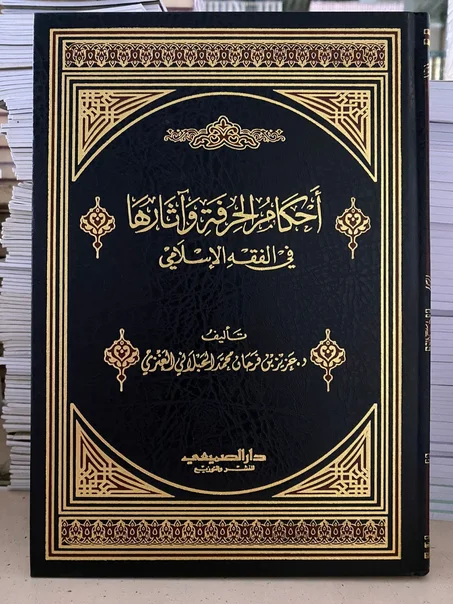 أَحْكَامُ الْحِرْفَةِ وَآثَارِهَا
فِي الْفِقْهِ الْإِسْلَامِيِّ
تأليف
د. عزيز بن فرحان محمد الحبلاني العنزي
دار الصميعي
للنشر والتوزيع